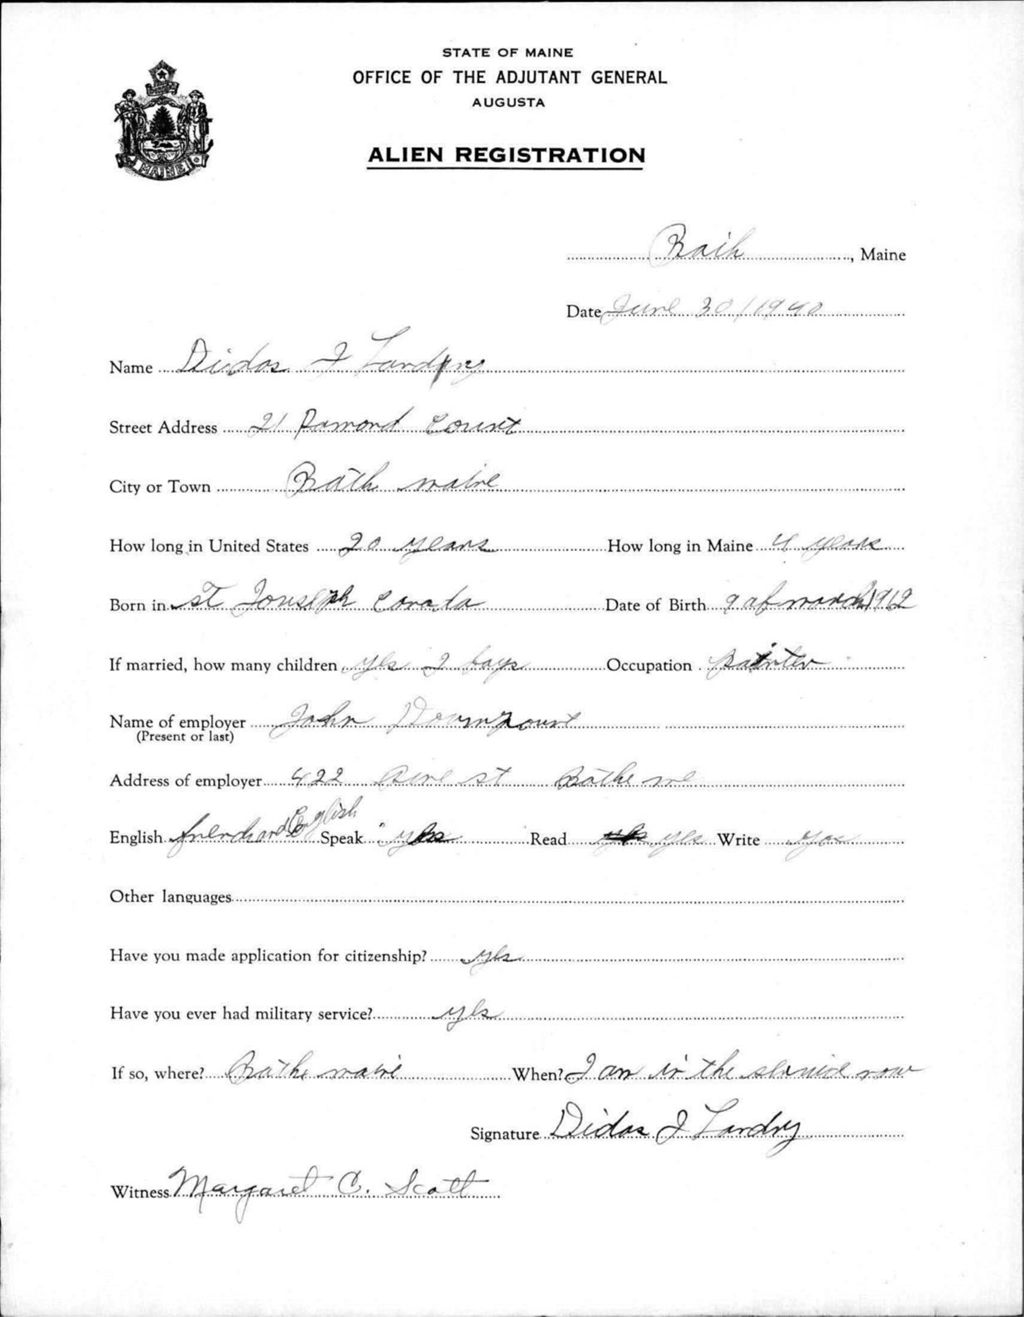 STATE OF MAINE
OFFICE OF THE ADJUTANT GENERAL
AUGUSTA
ALIEN REGISTRATION
MAINE
Bath, Maine
Date June 30/1940
Name Didas J Landry
Street Address 21 Court
City or Town Bath maine
How long in United States 20 years How long in Maine 4 years
Born in St Jouseph Canada Date of Birth 9 of march 1912
If married, how many children yes 2 boys Occupation painter
Name of employer John
(Present or last)
Address of employer 422 st Bathe me
English french and English Speak yes Read yes Write yes
Other languages
Have you made application for citizenship? yes
Have you ever had military service? yes
If so, where? Bathe maine When? I am in the now
Signature Didas J Landry
Witness Margaret C. Scott